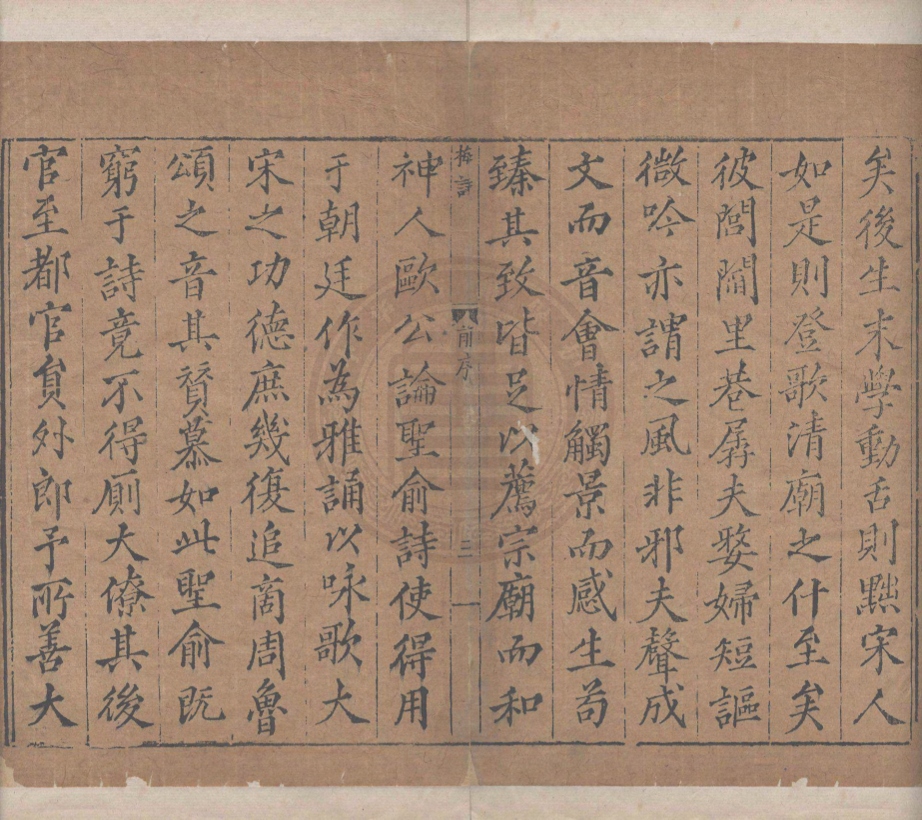 矣後生末學動舌則黜宋人
如是則登歌清廟之什至矣
彼閭閻里巷孱夫婺婦短謳
微吟亦謂之風非邪夫聲成
文而音會情觸景而感生苟
臻其致皆足以薦宗廟而和
梅詩 前序 三
神人歐公論聖俞詩使得用
于朝廷作為雅誦以咏歌大
宋之功德庶幾復追商周魯
頌之音其賛慕如此聖俞既
窮于詩竟不得廁大僚其後
官至都官貟外郎予所善大